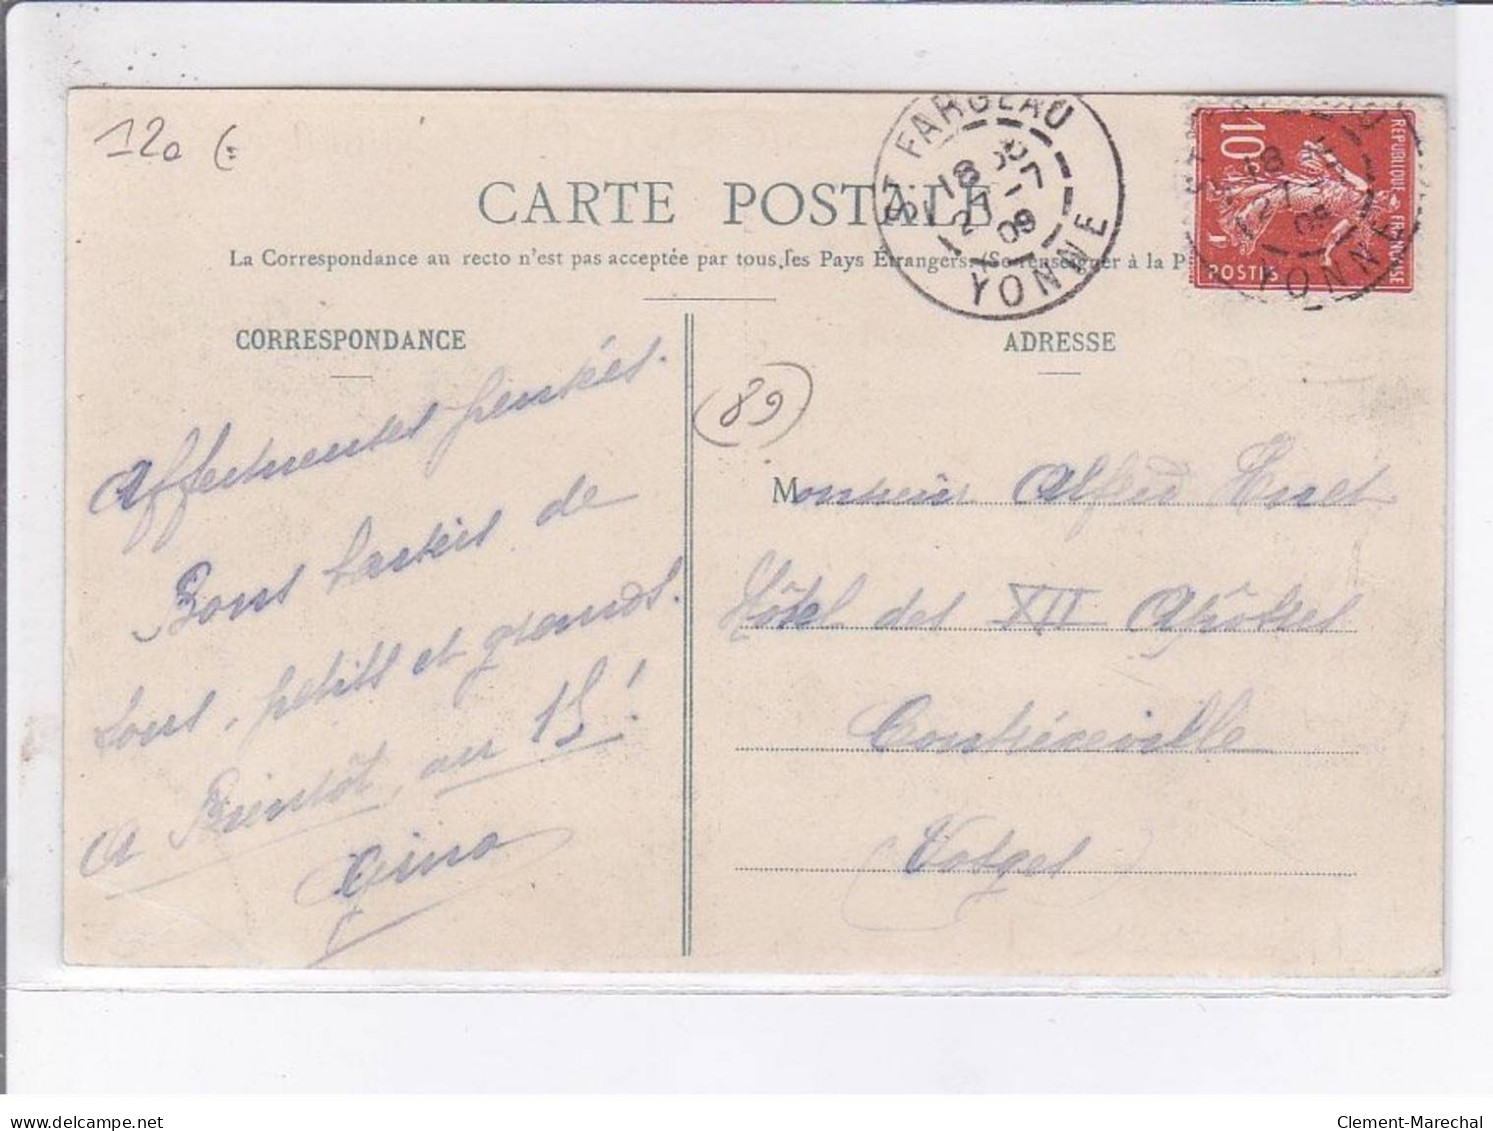 120 €
CARTE POSTALE
La Correspondance au recto n'est pas acceptée par tous les Pays Étrangers. (Se renseigner à la P
ST FARGEAU
18 30
27 - 7
09
YONNE
10
REPUBLIQUE FRANÇAISE
POSTES
18
27
09
YONNE
CORRESPONDANCE
Affectueuses pensées.
Bons baisers de
tous, petits et grands.
A Bientôt, au 15!
Gino
89
ADRESSE
Monsieur Alfred Huet
Hôtel des XII Apôtres
Contrexeville
(Vosges)
delcampe.net
Clement-Marechal